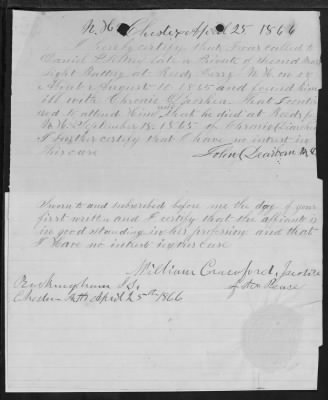 N.H. Chester April 25 1866
I hereby certify that I was called to
Daniel late a Private of Second Mass
Light Battery at Reeds Ferry N.H. on or
About August 10 1865 and found him
ill with Chronic Diarrhea that I continued
to attend him until that he died at Reeds
N.H. September 18, 1865 of Chronic Diarrhea
I further certify that I have no intrest in
this case
John M.D.
Sworn to and subscribed before me the day of year
first written and I certify that the affiant is
in good standing in his profession and that
I have no intrest in this case
William Crawford, Justice
of the Peace
Rockingham S S,
Chester NH April 25th 1866